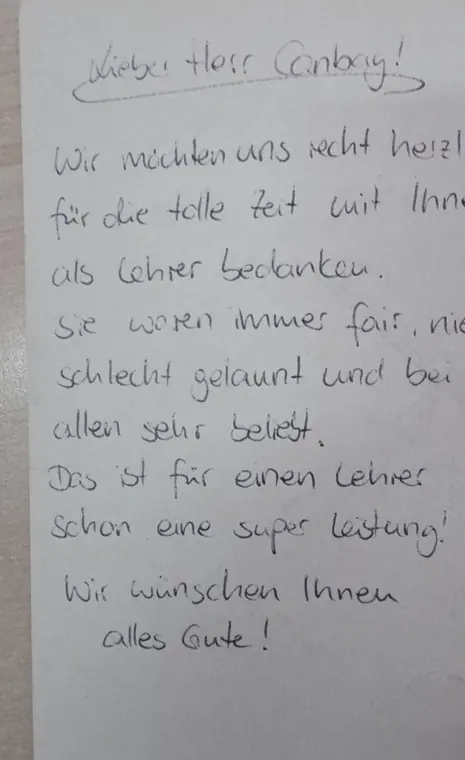 Lieber Herr Canbay!
Wir möchten uns recht herzl
für die tolle Zeit mit Ihne
als Lehrer bedanken.
Sie waren immer fair, nie
schlecht gelaunt und bei
allen sehr beliebt.
Das ist für einen Lehrer
schon eine super Leistung!
Wir wünschen Ihnen
alles Gute!